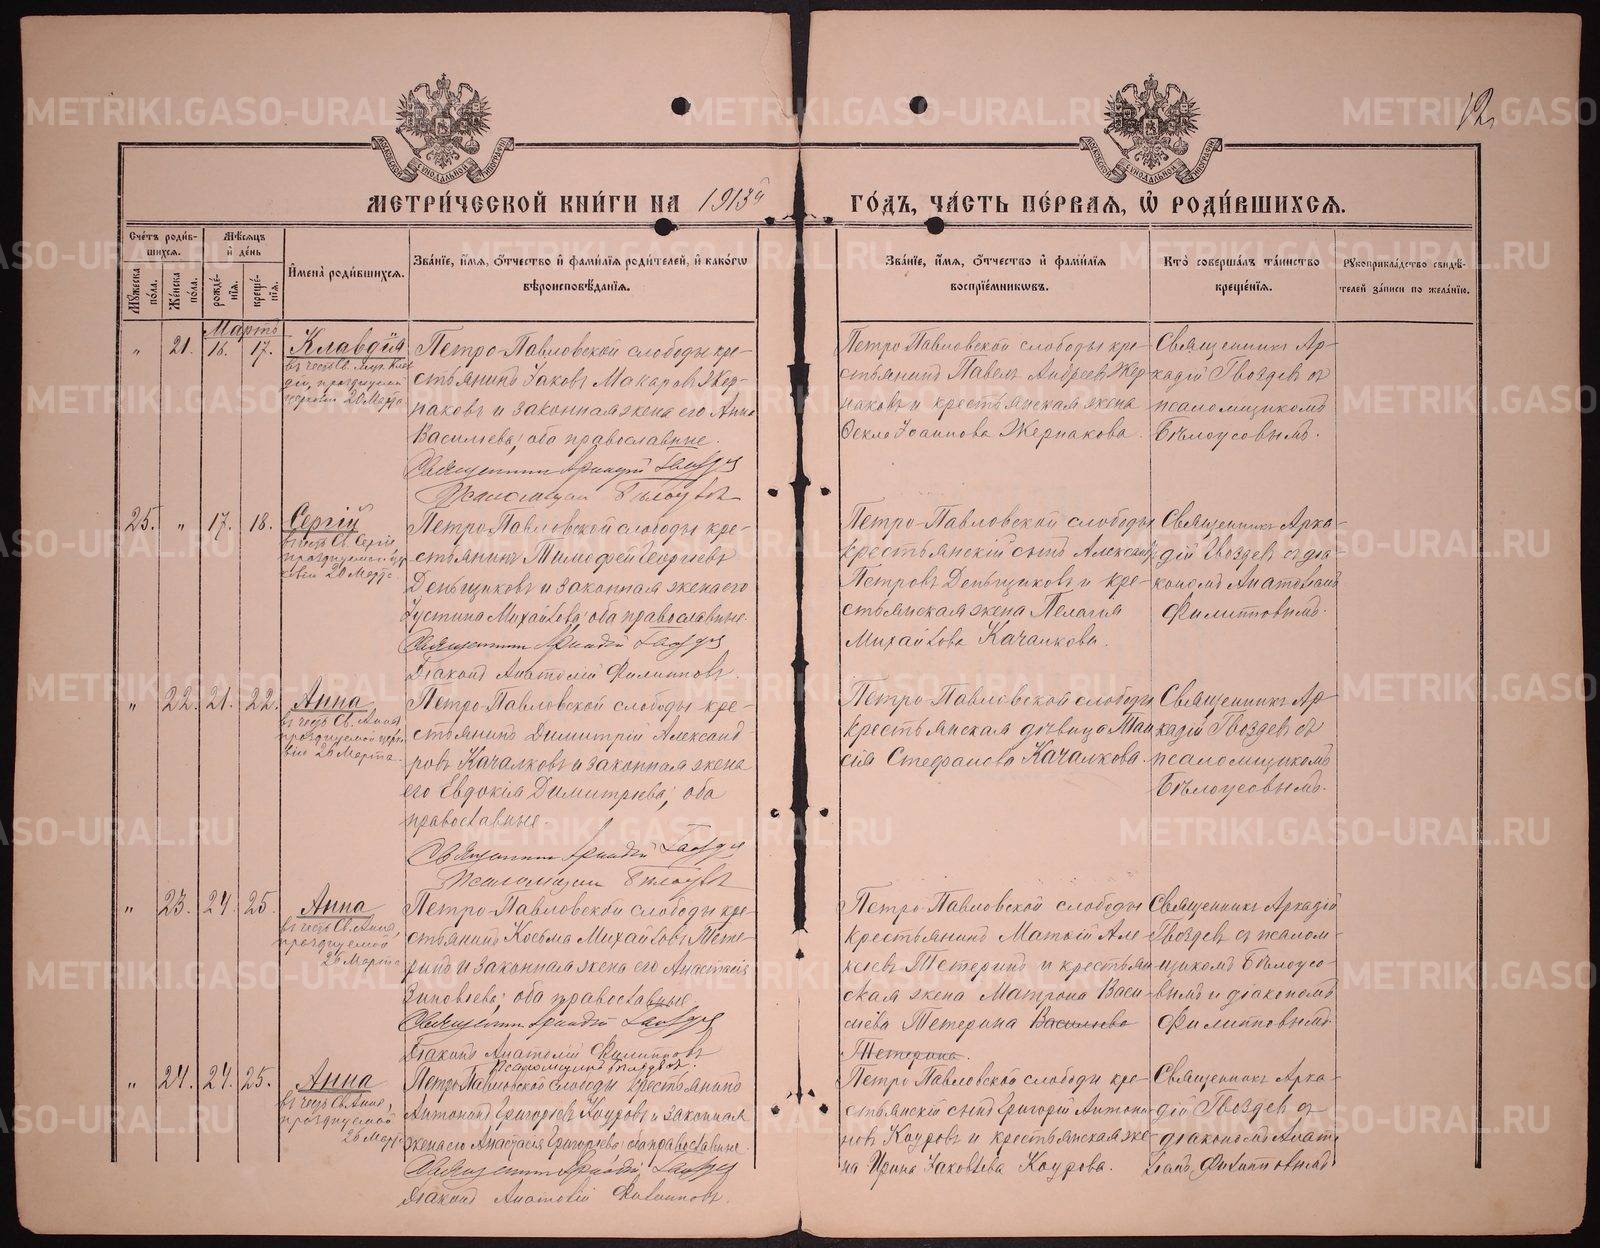 12
МЕТРИ́ЧЕСКОЙ КНИ́ГИ НА 1913й
ГО́ДЪ, ЧА́СТЬ ПЕ́РВАЯ, Ѡ҆ РОДИ́ВШИХСЯ.
Сче́тъ роди́в-
шихся.
Мѣ́сяцъ
и҆ де́нь
И҆мена̀ роди́вшихся.
Зва́нїе, и҆́мя, ѻ҆́тчество и҆ фами́лїя роди́телей, и҆ како́гѡ
вѣроисповѣ́данїя.
Зва́нїе, и҆́мя, ѻ҆́тчество и҆ фами́лїя
воспрїе́мниковъ.
Кто̀ соверша́лъ та́инство
креще́нїя.
Рꙋкоприкла́дство свидѣ́-
телей за́писи по жела́нїю.
Мꙋ́жеска
по́ла.
Же́нска
по́ла.
рожде́-
нїя.
креще́-
нїя.
Мартъ
„ 21. 16. 17.
Клавдія
20 Марта
Петро-Павловской слободы кре-
стьянинъ Іаковъ Макаровъ Жер-
наковъ и законная жена его Анна
Васильева; оба православные.
Священникъ Аркадій Гвоздевъ
Псаломщикъ Бѣлоусовъ
Петро-Павловской слободы кре-
стьянинъ Павелъ Андреевъ Жер-
наковъ и крестьянская жена
Ѳекла Іоаннова Жернакова.
Священникъ Ар-
кадій Гвоздевъ съ
псаломщикомъ
Бѣлоусовымъ.
25. „ 17. 18.
Сергій
въ честь Св. Сергія
празднуемаго цер-
ковію 20 Марта.
Петро-Павловской слободы кре-
стьянинъ Тимофей Георгіевъ
Деньщиковъ и законная жена его
Іустина Михайлова; оба православные.
Священникъ Аркадій Гвоздевъ
Діаконъ Анатолій Филипповъ.
Петро-Павловской слободы
крестьянскій сынъ Александръ
Петровъ Деньщиковъ и кре-
стьянская жена Пелагия
Михайлова Качалкова.
Священникъ Арка-
дій Гвоздевъ съ діа-
кономъ Анатоліемъ
Филипповымъ.
„ 22. 21. 22.
Анна
въ честь Св. Анны,
празднуемой церко-
вію 26 Марта.
Петро-Павловской слободы кре-
стьянинъ Димитрій Александ-
ровъ Качалковъ и законная жена
его Евдокія Димитріева; оба
православные.
Священникъ Аркадій Гвоздевъ
Псаломщикъ Бѣлоусовъ
Петро-Павловской слободы
крестьянская дѣвица Таи-
сія Стефанова Качалкова.
Священникъ Ар-
кадій Гвоздевъ съ
псаломщикомъ
Бѣлоусовымъ.
„ 23. 24. 25.
Анна
въ честь Св. Анны,
празднуемой
26 Марта
Петро-Павловской слободы кре-
стьянинъ Косьма Михайловъ Тете-
ринъ и законная жена его Анастасія
Зиновьева; оба православные
Священникъ Аркадій Гвоздевъ
Діаконъ Анатолій Филипповъ
Псаломщикъ Бѣлоусовъ.
Петро-Павловской слободы
крестьянинъ Матѳій Але-
ксіевъ Тетеринъ и крестьян-
ская жена Матрона Васи-
лиева Тетерина Васильева
Тетерина.
Священникъ Аркадій
Гвоздевъ съ псалом-
щикомъ Бѣлоусо-
вымъ и діакономъ
Филипповымъ
„ 24. 24. 25.
Анна
въ честь Св. Анны,
празднуемой
26 Марта
Петро-Павловской слободы крестьянинъ
Антонинъ Григорьевъ Коуровъ и законная
жена его Анастасія Григорьева; оба православные.
Священникъ Аркадій Гвоздевъ
Діаконъ Анатолій Филипповъ.
Петро-Павловской слободы кре-
стьянскій сынъ Григорій Антони-
новъ Коуровъ и крестьянская же-
на Ирина Іаковлева Коурова.
Священникъ Арка-
дій Гвоздевъ съ
діакономъ Анато-
ліемъ Филипповымъ
METRIKI.GASO-URAL.RU